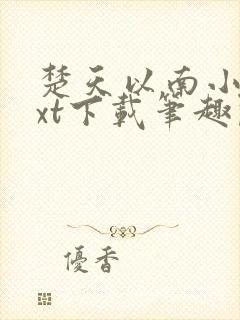 楚天以南小
xt下載筆趣
優香